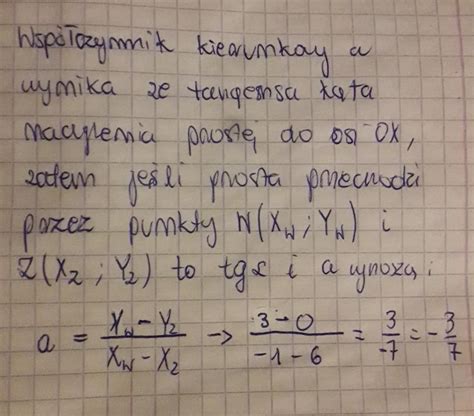 Współczynnik kierunkowy a
wynika ze tangensa kąta
nachylenia prostej do osi OX,
zatem jeśli prosta przechodzi
przez punkty W(X_W ; Y_W) i
Z(X_Z ; Y_Z) to tgα i a wynoszą:
a = (Y_W - Y_Z)/(X_W - X_Z) → (3 - 0)/(-1 - 6) = 3/-7 = -3/7